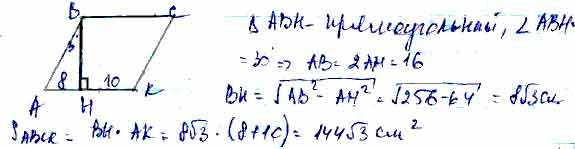 B C
Δ ABH - прямоугольный, ∠ABH=
= 30° ⇒ AB = 2AH = 16
8 10
A H K
BH = √AB² - AH² = √256-64 = 8√3 см
S ABCK = BH · AK = 8√3 · (8+10) = 144√3 см²